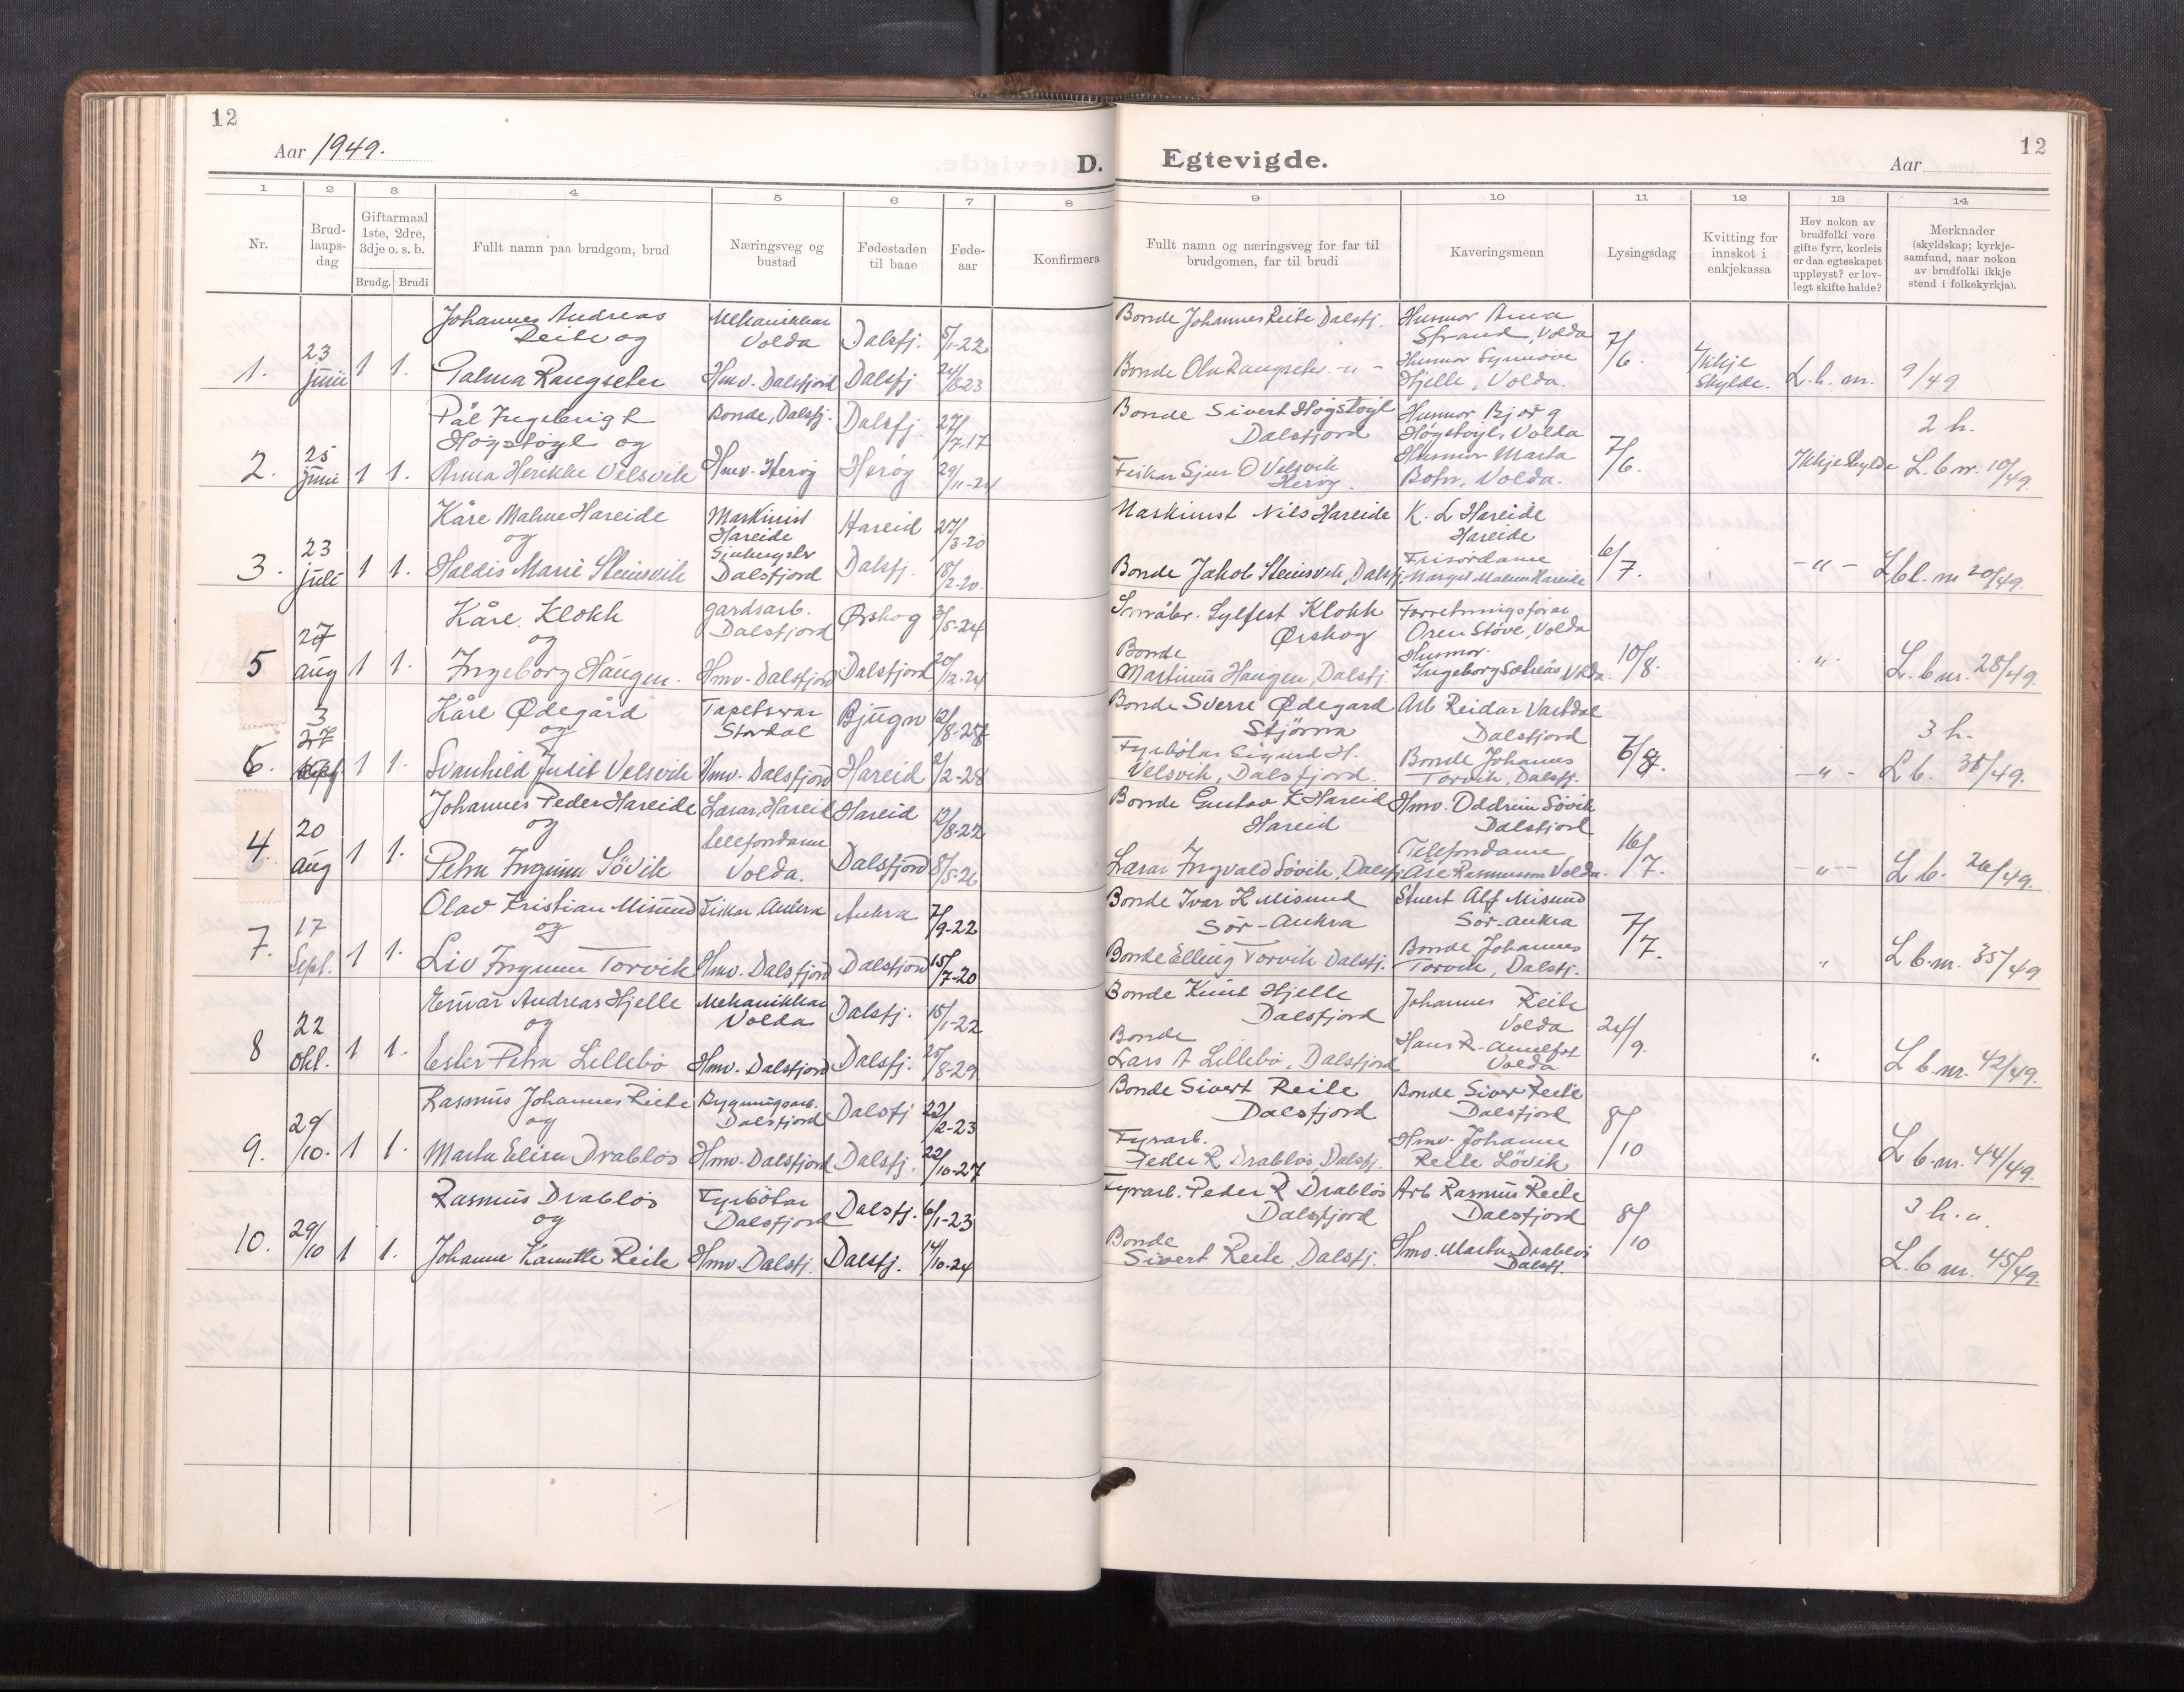 12
Aar 1949.
D.
Egtevigde.
Aar
12
1
2
3
4
5
6
7
8
9
10
11
12
13
14
Nr.
Brud-
laups-
dag
Giftarmaal
1ste, 2dre,
3dje o. s. b.
Brudg. Brudi
Fullt namn paa brudgom, brud
Næringsveg og
bustad
Fødestaden
til baae
Føde-
aar
Konfirmera
Fullt namn og næringsveg for far til
brudgomen, far til brudi
Kaveringsmenn
Lysingsdag
Kvitting for
innskot i
enkjekassa
Hev nokon av
brudfolki vore
gifte fyrr, korleis
er daa egteskapet
uppløyst? er lov-
legt skifte halde?
Merknader
(skyldskap; kyrkje-
samfund, naar nokon
av brudfolki ikkje
stend i folkekyrkja).
1.
23
juni
1 1.
Johannes Andreas
Reite og
Palma Rangseter
Mekanikkar
Volda
Hmv. Dalsfjord
Dalsfj.
Dalsfj
5/1-22
24/8-23
Bonde Johannes Reite Dalsfj.
Bonde Ola Rangseter -"-
Husmor Anna
Strand, Volda
Husmor Synnöve
Hjelle, Volda.
7/6.
Ikkje
skylde.
L. b. nr. 9/49
2.
25
juni
1 1.
Pål Ingebrigt
Høgstøyl og
Anna Henrikke Velsvik
Bonde, Dalsfj.
Hmv. Herøy
Dalsfj.
Herøy
27/7-17
29/11-24
Bonde Sivert Høgstøyl
Dalsfjord
Fiskar Sjur O Velsvik
Herøy.
Husmor Bjørg
Høgstøyl, Volda
Husmor Marta
Botn, Volda.
7/6.
Ikkje skylde
2 h.
L. b nr. 10/49.
3.
23
juli
1 1.
Kåre Malme Hareide
og
Haldis Marie Steinsvik
Maskinist
Hareide
Dalsfjord
Hareid
Dalsfj.
27/3-20
18/2-20.
Maskinist Nils Hareide
Bonde Jakob Steinsvik, Dalsfj.
K. L Hareide
Hareide
Frisördame
Margit Malme Hareide
6/7.
-"-
L b. nr 20/49.
5
27
aug
1 1.
Kåre Klokk
og
Ingeborg Haugen.
gardsarb.
Dalsfjord
Hmv. Dalsfjord
Ørskog
Dalsfjord
3/5-24
20/2-24
Småbr. Sylfest Klokk
Ørskog
Bonde
Martinus Haugen, Dalsfj.
Forretningsförar
Støve, Volda
Husmor.
Ingeborg Volda.
10/8.
"
L. b nr. 28/49.
6.
3
sept
1 1.
Kåre Ødegård
og
Svanhild Judit Velsvik
Tapetserar
Stordal
Hmv. Dalsfjord
Bjugn
Hareid
2/2-28
Bonde Sverre Ødegard
Stjörna
Fyrbötar Sigurd H.
Velsvik, Dalsfjord.
Arb Reidar Vartdal
Dalsfjord
Bonde Johannes
Torvik, Dalsfj.
-"-
3 h.
L b. 31/49.
4.
20
aug
1 1.
Johannes Peder Hareide
og
Petra Ingunn Sövik
Lærar, Hareid
telefondame
Volda.
Hareid
Dalsfjord
12/8-22
8/5-26
Bonde Gustav K Hareid
Hareid
Lærar Ingvald Sövik, Dalsfj.
Hmv. Oddrun Sövik
Dalsfjord
Telefondame
Åse Rasmussen Volda.
16/7.
-"-
L b. 26/49.
7.
17
Sept.
1 1.
Olav Kristian Misund
og
Liv Ingunn Torvik
Fiskar Aukra
Hmv. Dalsfjord
Aukra
Dalsfjord
7/9-22
15/7-20
Bonde Ivar K Misund
Sör-Aukra
Bonde Elling Torvik Dalsfj.
Stuert Alf Misund
Sör-Aukra
Bonde Johannes
Torvik, Dalsfj.
7/7.
"
L b. nr. 35/49
8
22
okt.
1 1.
Einar Andreas Hjelle
og
Ester Petra Lillebö
Mekanikkar
Volda
Hmv. Dalsfjord
Dalsfj.
Dalsfj.
15/1-22
25/8-29
Bonde Knut Hjelle
Dalsfjord
Bonde
Lars A Lillebö, Dalsfjord
Johannes Reite
Volda
Hans R.
Volda
24/9.
"
L b. nr. 42/49.
9.
29/10.
1 1.
Rasmus Johannes Reite
og
Marta Elisa Drabløs
Bygningsarb.
Dalsfjord
Hmv. Dalsfjord
Dalsfj
Dalsfj.
22/2-23
22/10-27
Bonde Sivert Reite
Dalsfjord
Fyrarb.
Peder R. Drabløs, Dalsfj.
Bonde Siver Reite
Dalsfjord
Hmv. Johanne
Reite Lövik
8/10
L b. nr. 44/49.
10.
29/10
1 1.
Rasmus Drabløs
og
Johanne Kamille Reite
Fyrbötar
Dalsfjord
Hmv Dalsfj.
Dalsfj.
Dalsfj.
6/1-23
14/10-24
Fyrarb. Peder R Drabløs
Dalsfjord
Bonde
Sivert Reite, Dalsfj.
Arb Rasmus Reite
Dalsfjord
Hmv. Marta Drabløs
Dalsfj.
8/10
3 h. a.
L. b nr. 45/49.